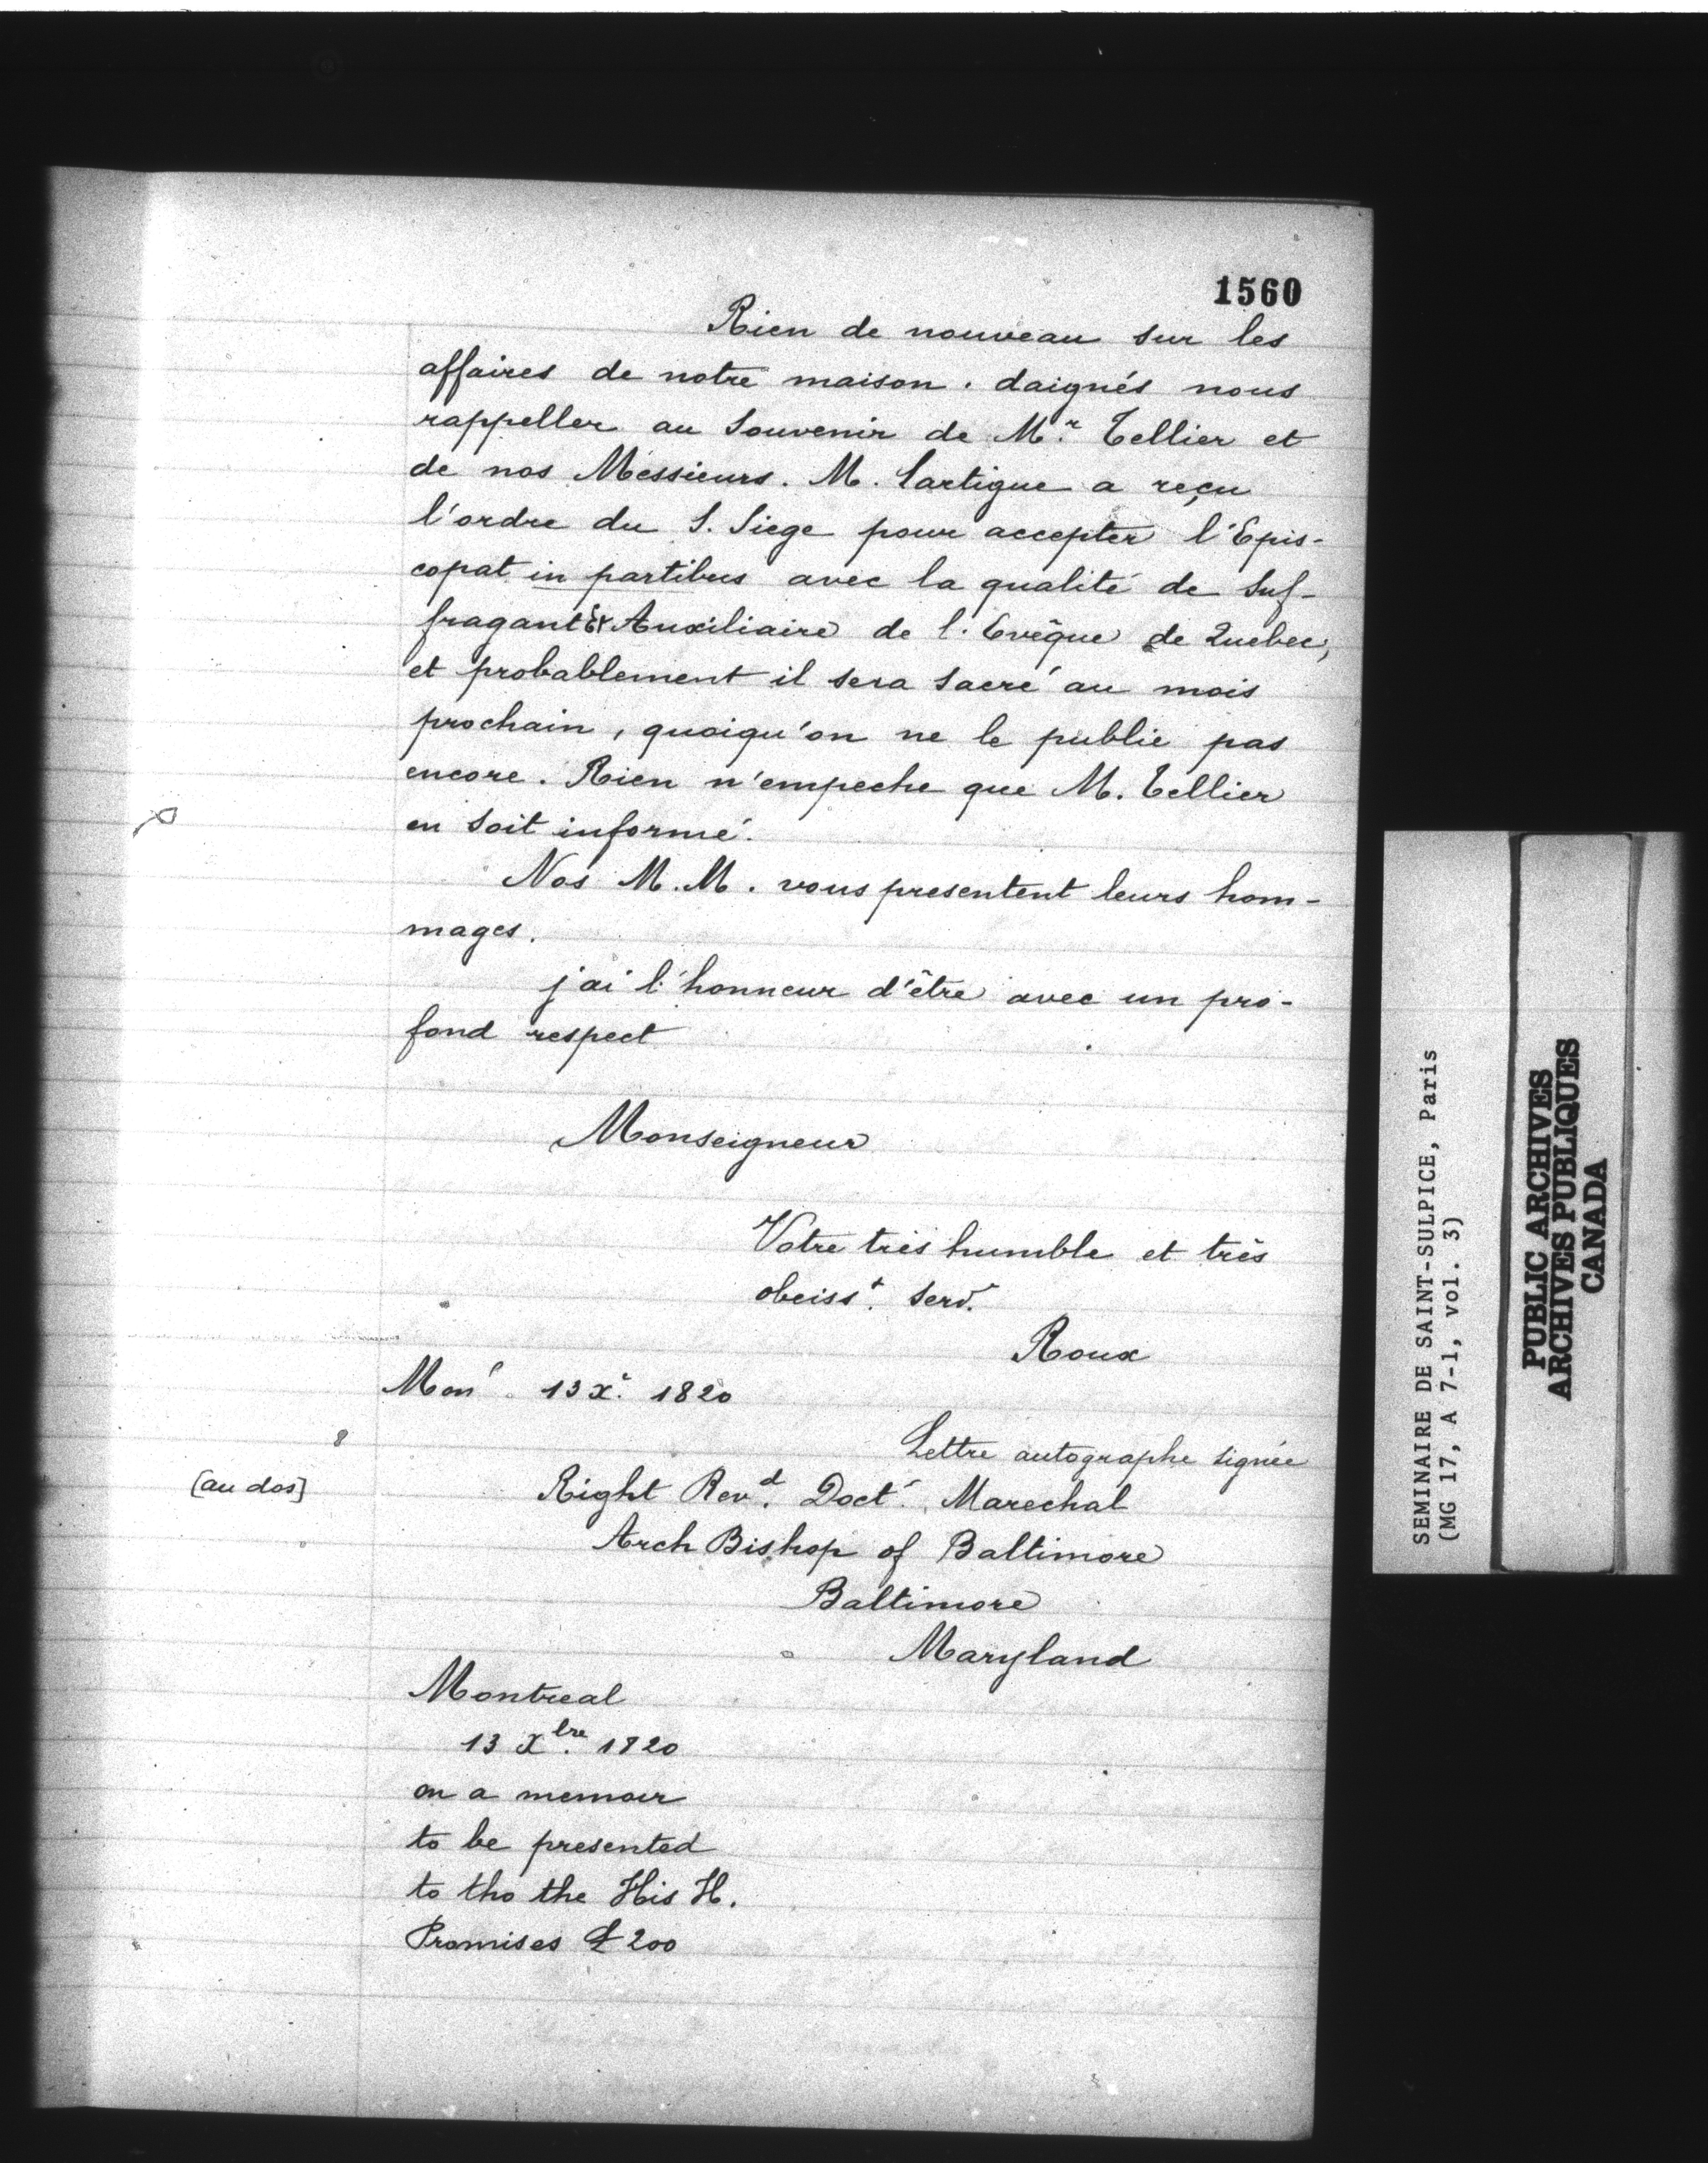 1560
Rien de nouveau sur les
affaires de notre maison. daignés nous
rappeller au Souvenir de M.r Tellier et
de nos Messieurs. M. Lartigue a reçu
l'ordre du S. Siege pour accepter l'Epis-
copat in partibus avec la qualité de Suf-
fragant Et Auxiliaire de l. Evêque de Quebec,
et probablement il sera sacré au mois
prochain, quoiqu'on ne le publie pas
encore. Rien n'empeche que M. Tellier
en soit informé.
Nos M.M. vous presentent leurs hom-
mages.
j'ai l'honneur d'être avec un pro-
fond respect
Monseigneur
Votre très humble et très
obeiss.t serv.r
Roux
Mon.l 13 X.r 1820
Lettre autographe signée
[au dos]
Right Rev.d Doct.r Marechal
Arch Bishop of Baltimore
Baltimore
Maryland
Montreal
13 X.bre 1820
on a memoir
to be presented
to tho the His H.
Promises £ 200
SEMINAIRE DE SAINT-SULPICE, Paris
(MG 17, A 7-1, vol. 3)
PUBLIC ARCHIVES
ARCHIVES PUBLIQUES
CANADA